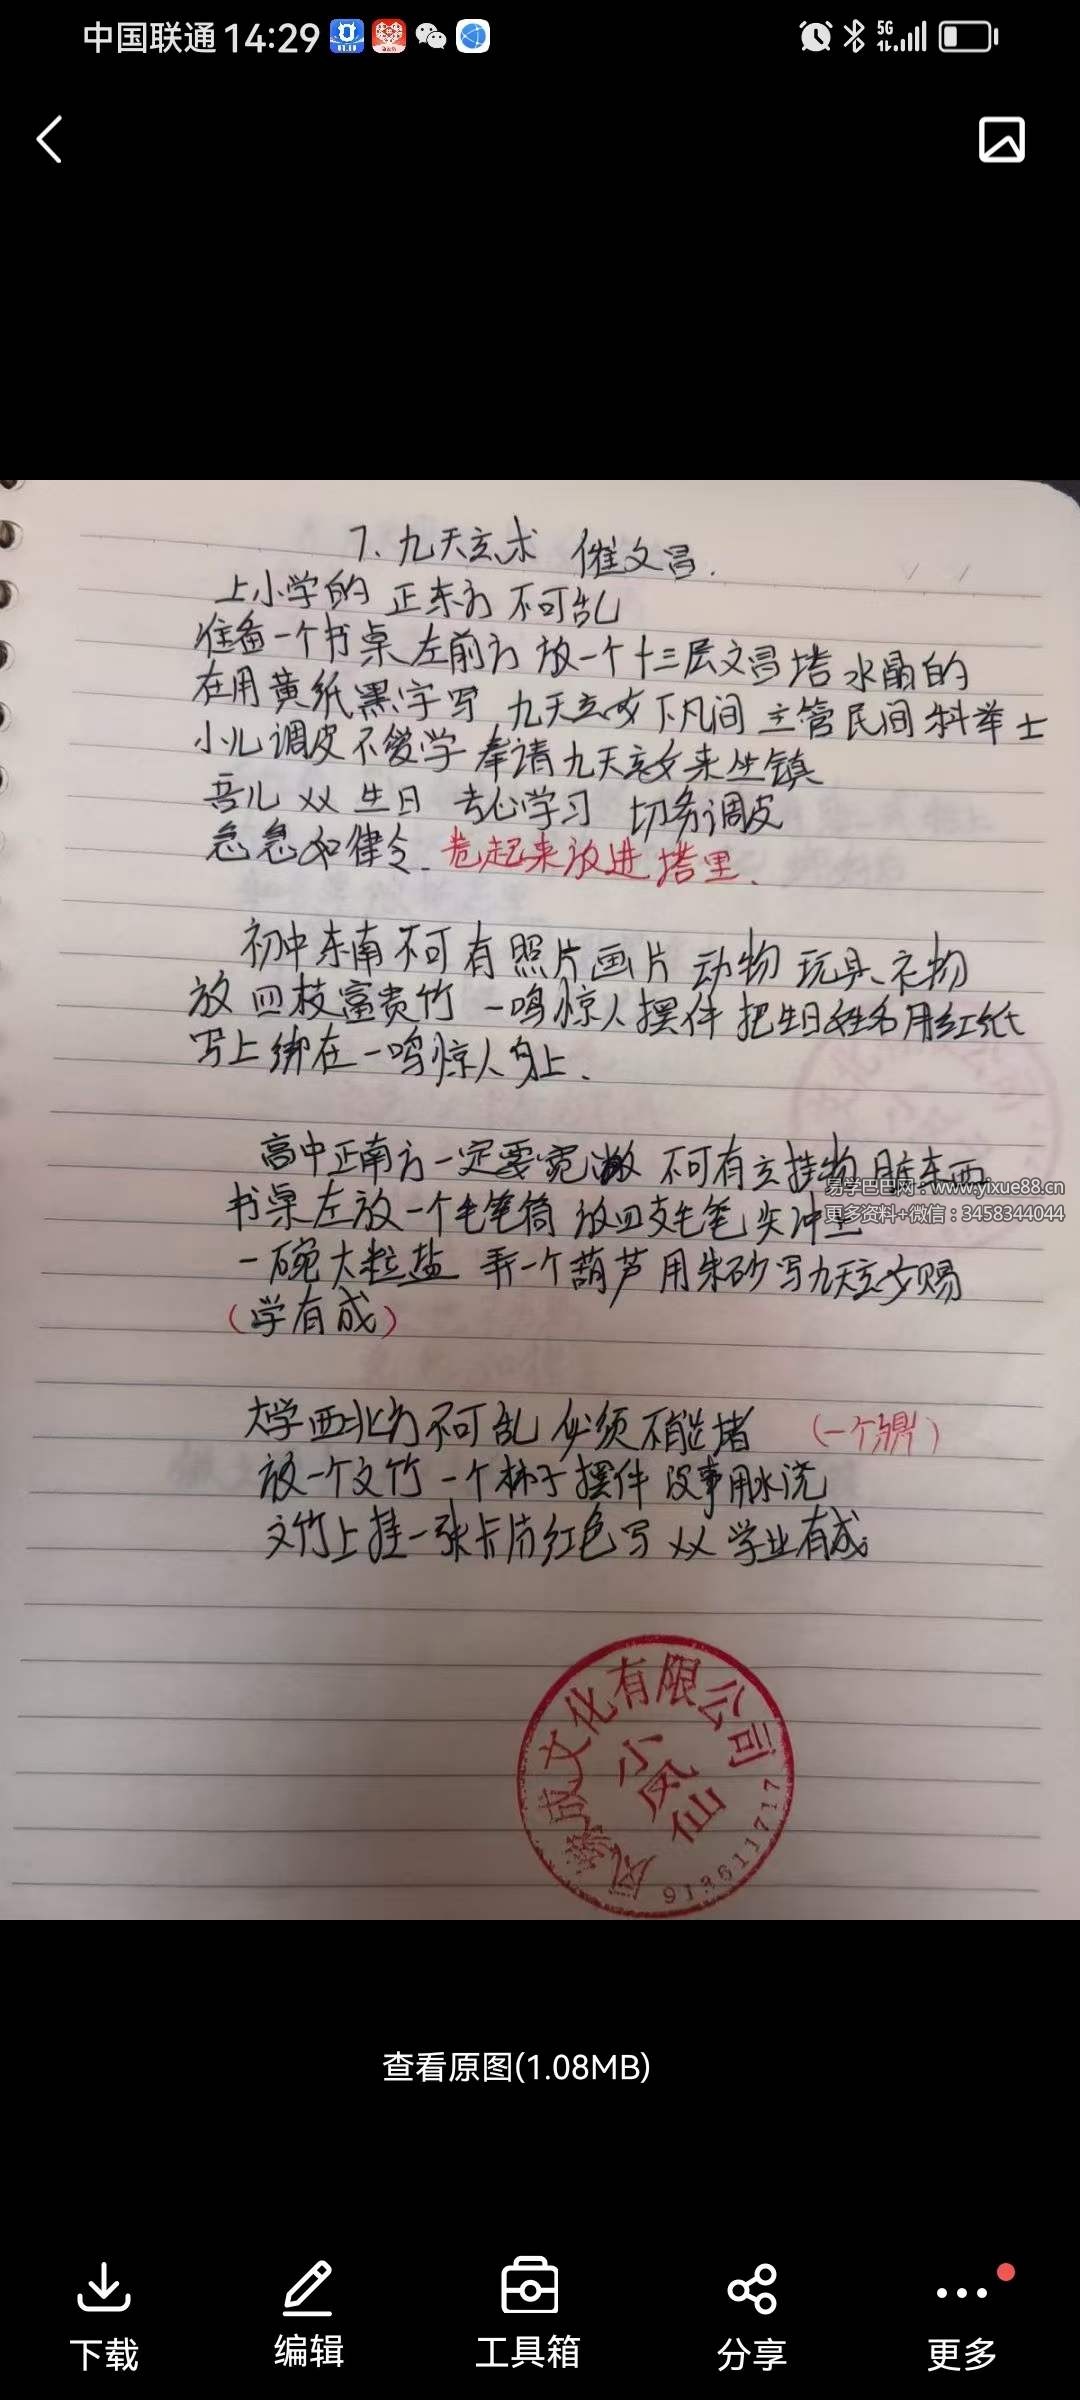 中国联通 14:29
5G
7、九天玄术 催文昌.
上小学的 正东方 不可乱
准备一个书桌 左前方 放一个十三层文昌塔 水晶的
在用黄纸黑字写 九天玄女下凡间 主管民间科举士
小儿调皮不爱学 奉请九天玄女来坐镇
吾儿 XX 生日 专心学习 切务调皮
急急如律令. 卷起来放进塔里.
初中东南不可有照片画片 动物 玩具、礼物
放四枝富贵竹 一鸣惊人摆件 把生日姓名用红纸
写上绑在一鸣惊人身上.
高中正南方一定要宽敞 不可有玄挂物 脏东西
易学巴巴网：www.yixue88.cn
书桌左放一个毛笔筒 放四支毛笔 头冲上
更多资料+微信：3458344044
一碗大粒盐 弄一个葫芦用朱砂写九天玄女赐
(学有成)
大学西北方不可乱 必须不能堵 (一个鼎)
放一个文竹 一个柿子摆件 没事用水洗
文竹上挂一张卡片红色写 XX 学业有成.
文化有限公司
小凤仙
9136111717
查看原图(1.08MB)
下载 编辑 工具箱 分享 更多